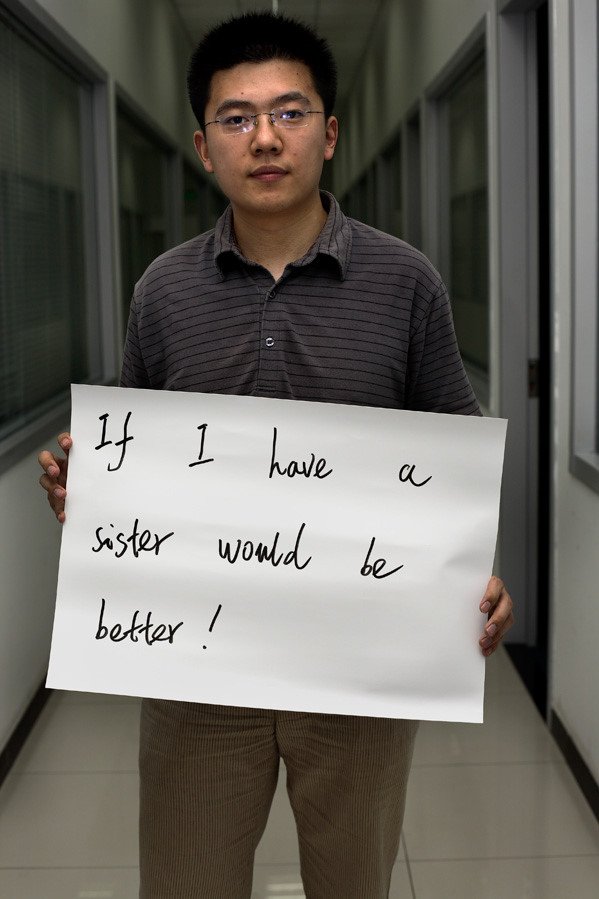 If I have a
sister would be
better!